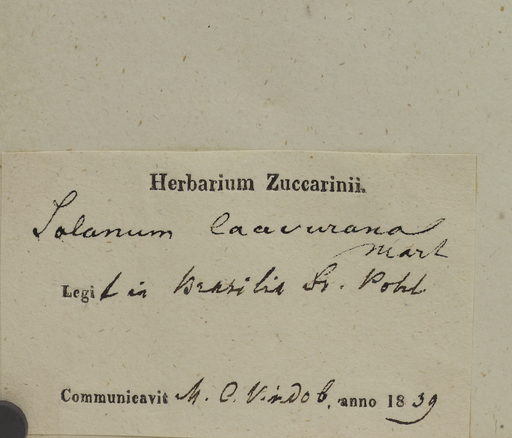 Herbarium Zuccarinii.
Solanum caavurana
Mart
Legit in Brasilia Dr. Pohl
Communicavit M. C. Vindob. anno 1839